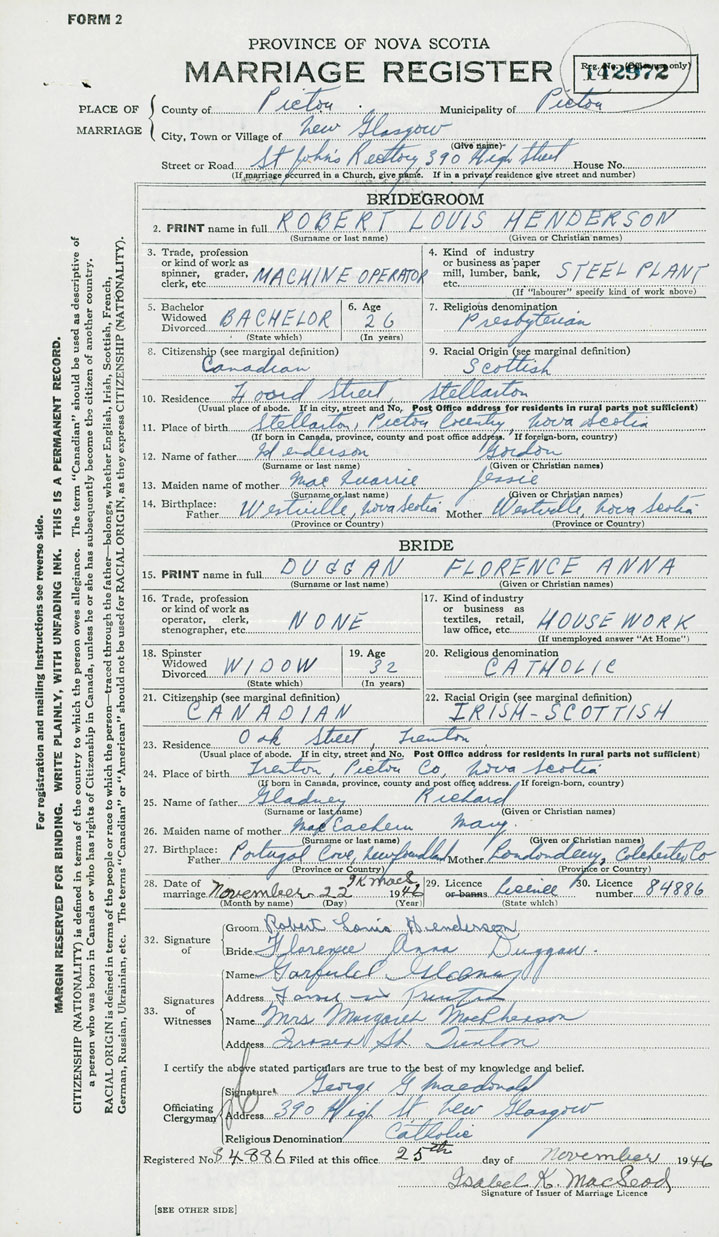 FORM 2
PROVINCE OF NOVA SCOTIA
MARRIAGE REGISTER
Reg. No. (Office use only)
142972
PLACE OF MARRIAGE
County of Pictou Municipality of Pictou
City, Town or Village of New Glasgow
(Give name)
Street or Road St John's Rectory 390 High Street House No.
(If marriage occurred in a Church, give name. If in a private residence give street and number)
BRIDEGROOM
2. PRINT name in full ROBERT LOUIS HENDERSON
(Surname or last name) (Given or Christian names)
3. Trade, profession or kind of work as spinner, grader, clerk, etc. MACHINE OPERATOR
4. Kind of industry or business as paper mill, lumber, bank, etc. STEEL PLANT
(If "labourer" specify kind of work above)
5. Bachelor Widowed Divorced BACHELOR
(State which)
6. Age 26
(In years)
7. Religious denomination
Presbyterian
8. Citizenship (see marginal definition)
Canadian
9. Racial Origin (see marginal definition)
Scottish
10. Residence Foord Street, Stellarton
(Usual place of abode. If in city, street and No. Post Office address for residents in rural parts not sufficient)
11. Place of birth Stellarton, Pictou County, Nova Scotia
(If born in Canada, province, county and post office address. If foreign-born, country)
12. Name of father Henderson Gordon
(Surname or last name) (Given or Christian names)
13. Maiden name of mother MacQuarrie Jessie
(Surname or last name) (Given or Christian names)
14. Birthplace: Father Westville, Nova Scotia Mother Westville, Nova Scotia
(Province or Country) (Province or Country)
BRIDE
15. PRINT name in full DUGGAN FLORENCE ANNA
(Surname or last name) (Given or Christian names)
16. Trade, profession or kind of work as operator, clerk, stenographer, etc. NONE
17. Kind of industry or business as textiles, retail, law office, etc. HOUSE WORK
(If unemployed answer "At Home")
18. Spinster Widowed Divorced WIDOW
(State which)
19. Age 32
(In years)
20. Religious denomination
CATHOLIC
21. Citizenship (see marginal definition)
CANADIAN
22. Racial Origin (see marginal definition)
IRISH-SCOTTISH
23. Residence Oak Street, Trenton
(Usual place of abode. If in city, street and No. Post Office address for residents in rural parts not sufficient)
24. Place of birth Trenton, Pictou Co, Nova Scotia
(If born in Canada, province, county and post office address. If foreign-born, country)
25. Name of father Gladney Richard
(Surname or last name) (Given or Christian names)
26. Maiden name of mother MacEachern Mary
(Surname or last name) (Given or Christian names)
27. Birthplace: Father Portugal Cove, Newfoundland Mother Londonderry, Colchester Co
(Province or Country) (Province or Country)
28. Date of marriage November 22 1946
(Month by name) (Day) (Year)
29. Licence or banns Licence
(State which)
30. Licence number 84886
32. Signature of
Groom Robert Louis Henderson
Bride Florence Anna Duggan
33. Signatures of Witnesses
Name Garfield
Address
Name Mrs Margaret MacPherson
Address Fraser St. Trenton
I certify the above stated particulars are true to the best of my knowledge and belief.
Officiating Clergyman
Signature George G Macdonald
Address 390 High St New Glasgow
Religious Denomination Catholic
Registered No. 84886 Filed at this office 25th day of November 1946
Isabel K. MacLeod
Signature of Issuer of Marriage Licence
[SEE OTHER SIDE]
For registration and mailing instructions see reverse side.
MARGIN RESERVED FOR BINDING. WRITE PLAINLY, WITH UNFADING INK. THIS IS A PERMANENT RECORD.
CITIZENSHIP (NATIONALITY) is defined in terms of the country to which the person owes allegiance. The term "Canadian" should be used as descriptive of
a person who was born in Canada or who has rights of Citizenship in Canada, unless he or she has subsequently become the citizen of another country.
RACIAL ORIGIN is defined in terms of the people or race to which the person—traced through the father—belongs, whether English, Irish, Scottish, French,
German, Russian, Ukrainian, etc. The terms "Canadian" or "American" should not be used for RACIAL ORIGIN, as they express CITIZENSHIP (NATIONALITY).